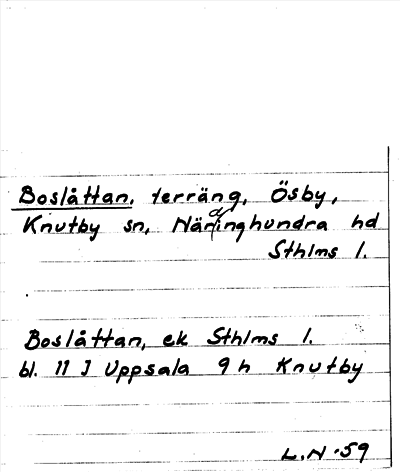 Boslåttan, terräng, Ösby,
Knutby sn, Närdinghundra hd
Sthlms l.
Boslåttan, ek Sthlms l.
bl. 11 I Uppsala 9 h Knutby
L.N -59